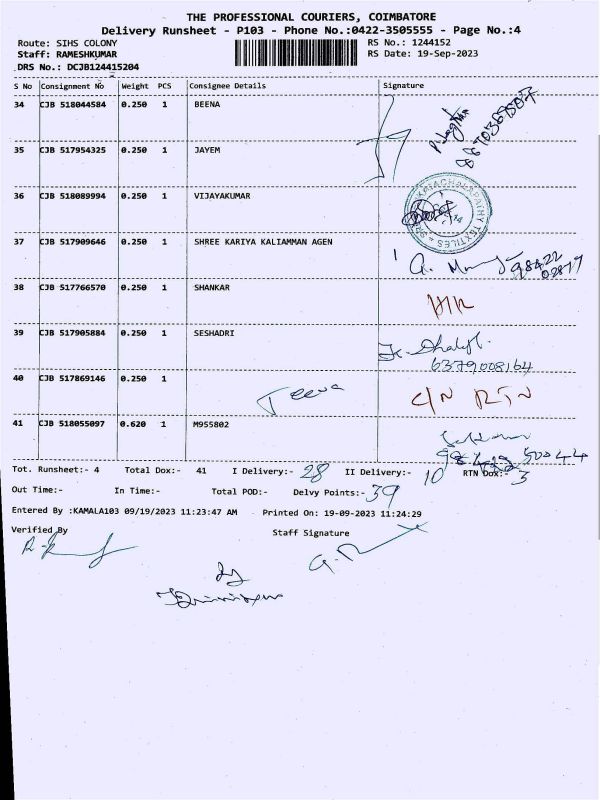 THE PROFESSIONAL COURIERS, COIMBATORE
Delivery Runsheet - P103 - Phone No.:0422-3505555 - Page No.:4
Route: SIHS COLONY RS No.: 1244152
Staff: RAMESHKUMAR RS Date: 19-Sep-2023
DRS No.: DCJB124415204
S No Consignment No Weight PCS Consignee Details Signature
34 CJB 518044584 0.250 1 BEENA
35 CJB 517954325 0.250 1 JAYEM
36 CJB 518089994 0.250 1 VIJAYAKUMAR
37 CJB 517909646 0.250 1 SHREE KARIYA KALIAMMAN AGEN
38 CJB 517766570 0.250 1 SHANKAR
39 CJB 517905884 0.250 1 SESHADRI
6379008164
40 CJB 517869146 0.250 1 Jeeva C/N RTN
41 CJB 518055097 0.620 1 M955802
Tot. Runsheet:- 4 Total Dox:- 41 I Delivery:- 28 II Delivery:- 10 RTN Dox:- 3
Out Time:- In Time:- Total POD:- Delvy Points:- 39
Entered By :KAMALA103 09/19/2023 11:23:47 AM Printed On: 19-09-2023 11:24:29
Verified By Staff Signature